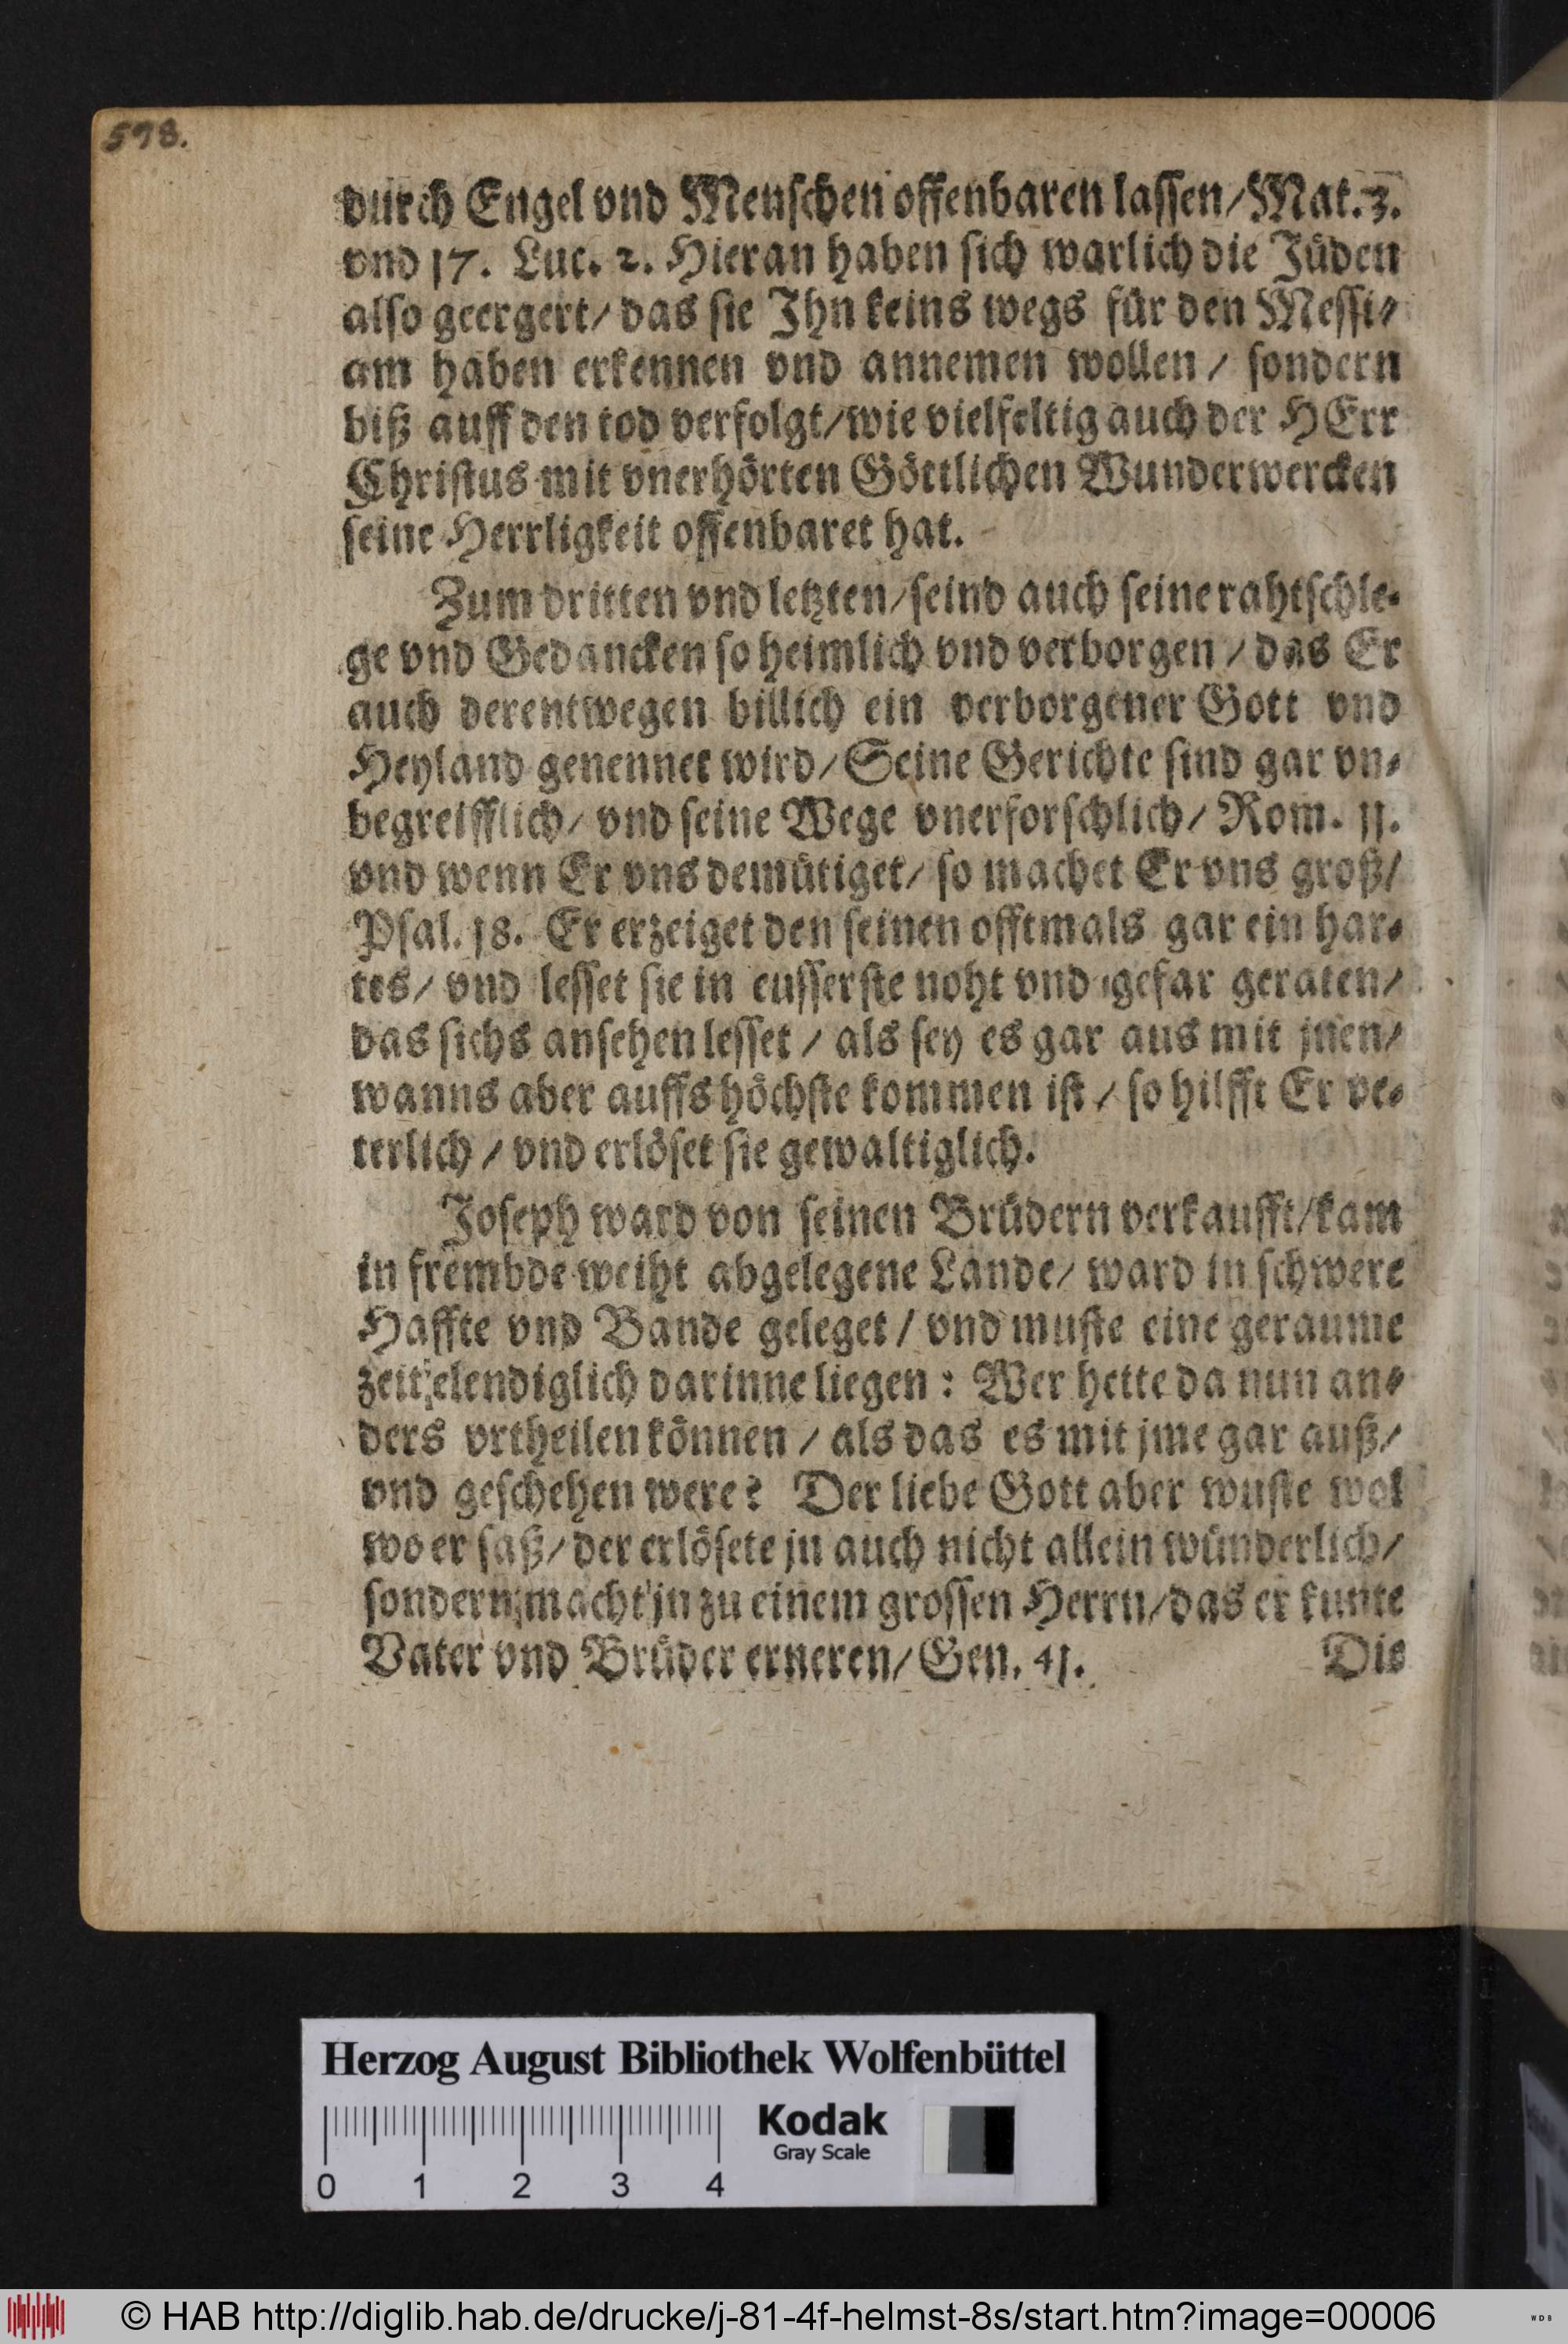 578.
durch Engel vnd Menschen offenbaren lassen/Mat. 3.
vnd 17. Luc. 2. Hieran haben sich warlich die Jüden
also geergert/ das sie Ihn keins wegs für den Messi-
am haben erkennen vnd annemen wollen / sondern
biß auff den tod verfolgt/wie vielfeltig auch der HErr
Christus mit vnerhörten Göttlichen Wunderwercken
seine Herrligkeit offenbaret hat.
Zum dritten vnd letzten/seind auch seine rahtschle-
ge vnd Gedancken so heimlich vnd verborgen / das Er
auch derentwegen billich ein verborgener Gott vnd
Heyland genennet wird/ Seine Gerichte sind gar vn-
begreifflich/ vnd seine Wege vnerforschlich/ Rom. 11.
vnd wenn Er vns demütiget/ so machet Er vns groß/
Psal. 18. Er erzeiget den seinen offtmals gar ein har-
tes/ vnd lesset sie in eusserste noht vnd gefar geraten/
das sichs ansehen lesset / als sey es gar aus mit jnen/
wanns aber auffs höchste kommen ist / so hilfft Er ve-
terlich / vnd erlöset sie gewaltiglich.
Joseph ward von seinen Brüdern verkaufft/kam
in frembde weiht abgelegene Lande/ ward in schwere
Haffte vnd Bande geleget / vnd muste eine geraume
zeit elendiglich darinne liegen : Wer hette da nun an-
ders vrtheilen können / als das es mit jme gar auß/
vnd geschehen were? Der liebe Gott aber wuste wol
wo er saß/ der erlösete jn auch nicht allein wünderlich/
sondern macht jn zu einem grossen Herrn/das er kunte
Vater vnd Brüder erneren/ Gen. 41. Die
Herzog August Bibliothek Wolfenbüttel
Kodak
Gray Scale
0 1 2 3 4
© HAB http://diglib.hab.de/drucke/j-81-4f-helmst-8s/start.htm?image=00006
WDB